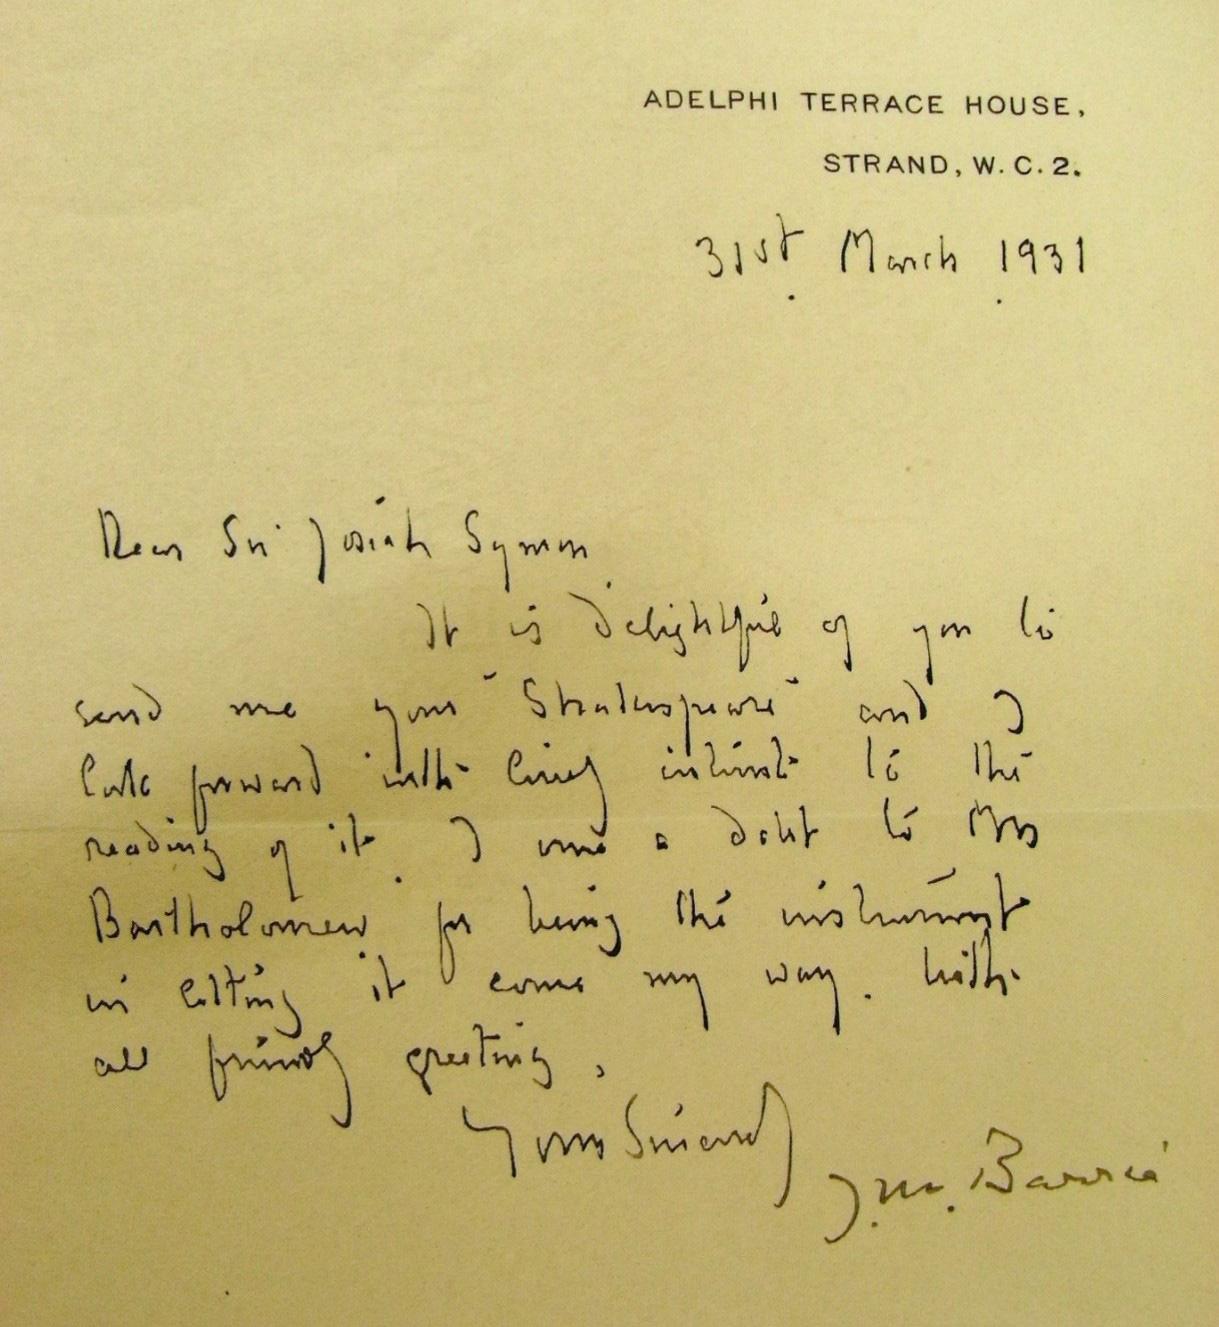 ADELPHI TERRACE HOUSE,
STRAND, W. C. 2.
31st March 1931
Dear Sir Josiah Symon
It is delightful of you to
send me your "Shakespeare" and I
look forward with lively interest to the
reading of it. I owe a debt to Mrs
Bartholomew for being the instrument
in letting it come my way. With
all friendly greeting,
Yours Sincerely
J. M. Barrie